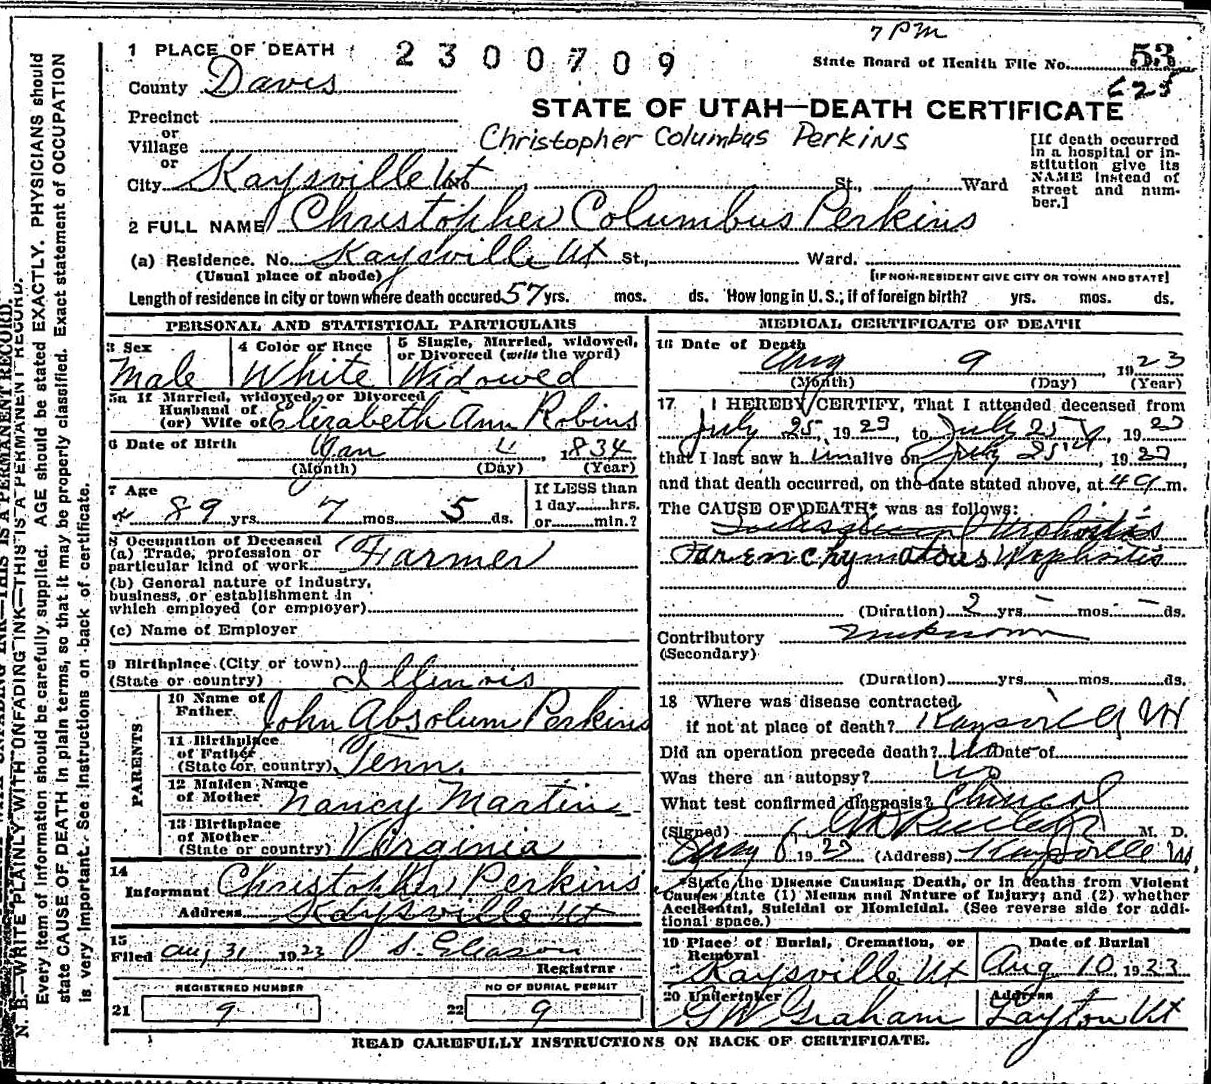 7 PM
1 PLACE OF DEATH 2300709 State Board of Health File No. 53
County Davis 625
STATE OF UTAH—DEATH CERTIFICATE
Precinct
or
Village
Christopher Columbus Perkins
[If death occurred in a hospital or institution give its NAME instead of street and number.]
or
City Kaysville Ut St., Ward
2 FULL NAME Christopher Columbus Perkins
(a) Residence. No. Kaysville Ut St., Ward.
(Usual place of abode) [IF NON-RESIDENT GIVE CITY OR TOWN AND STATE]
Length of residence in city or town where death occured 57 yrs. mos. ds. How long in U. S., if of foreign birth? yrs. mos. ds.
PERSONAL AND STATISTICAL PARTICULARS
3 Sex 4 Color or Race 5 Single, Married, widowed, or Divorced (write the word)
Male White Widowed
5a If Married, widowed, or Divorced
Husband of
(or) Wife of Elizabeth Ann Robins
6 Date of Birth Jan 4, 1834
(Month) (Day) (Year)
7 Age If LESS than
89 yrs. 7 mos. 5 ds. 1 day hrs.
or min.?
8 Occupation of Deceased
(a) Trade, profession or
particular kind of work Farmer
(b) General nature of industry,
business, or establishment in
which employed (or employer)
(c) Name of Employer
9 Birthplace (City or town)
(State or country) Illinois
PARENTS
10 Name of
Father John Absolum Perkins
11 Birthplace
of Father
(State or country) Tenn.
12 Maiden Name
of Mother Nancy Martin
13 Birthplace
of Mother
(State or country) Virginia
14
Informant Christopher Perkins
Address Kaysville Ut
15
Filed Aug 31 1923 S. Gleason
Registrar
REGISTERED NUMBER NO OF BURIAL PERMIT
21 9 22 9
MEDICAL CERTIFICATE OF DEATH
16 Date of Death
Aug 9, 1923
(Month) (Day) (Year)
17 I HEREBY CERTIFY, That I attended deceased from
July 25, 1923, to July 25, 1923
that I last saw him alive on July 25, 1923,
and that death occurred, on the date stated above, at m.
The CAUSE OF DEATH* was as follows:
Parenchymatous Nephritis
(Duration) 2 yrs. - mos. - ds.
Contributory unknown
(Secondary)
(Duration) yrs. mos. ds.
18 Where was disease contracted
if not at place of death? Kaysville Ut
Did an operation precede death? No Date of
Was there an autopsy? No
What test confirmed diagnosis? Clinical
(Signed) M. D.
1923 (Address) Kaysville Ut,
*State the Disease Causing Death, or in deaths from Violent
Causes state (1) Means and Nature of Injury; and (2) whether
Accidental, Suicidal or Homicidal. (See reverse side for addi-
tional space.)
19 Place of Burial, Cremation, or Removal Date of Burial
Kaysville Ut Aug 10, 1923
20 Undertaker Address
G W Graham Layton Ut
READ CAREFULLY INSTRUCTIONS ON BACK OF CERTIFICATE.
N. B.—WRITE PLAINLY WITH UNFADING INK—THIS IS A PERMANENT RECORD.
Every item of information should be carefully supplied. AGE should be stated EXACTLY. PHYSICIANS should
state CAUSE OF DEATH in plain terms, so that it may be properly classified. Exact statement of OCCUPATION
is very important. See instructions on back of certificate.